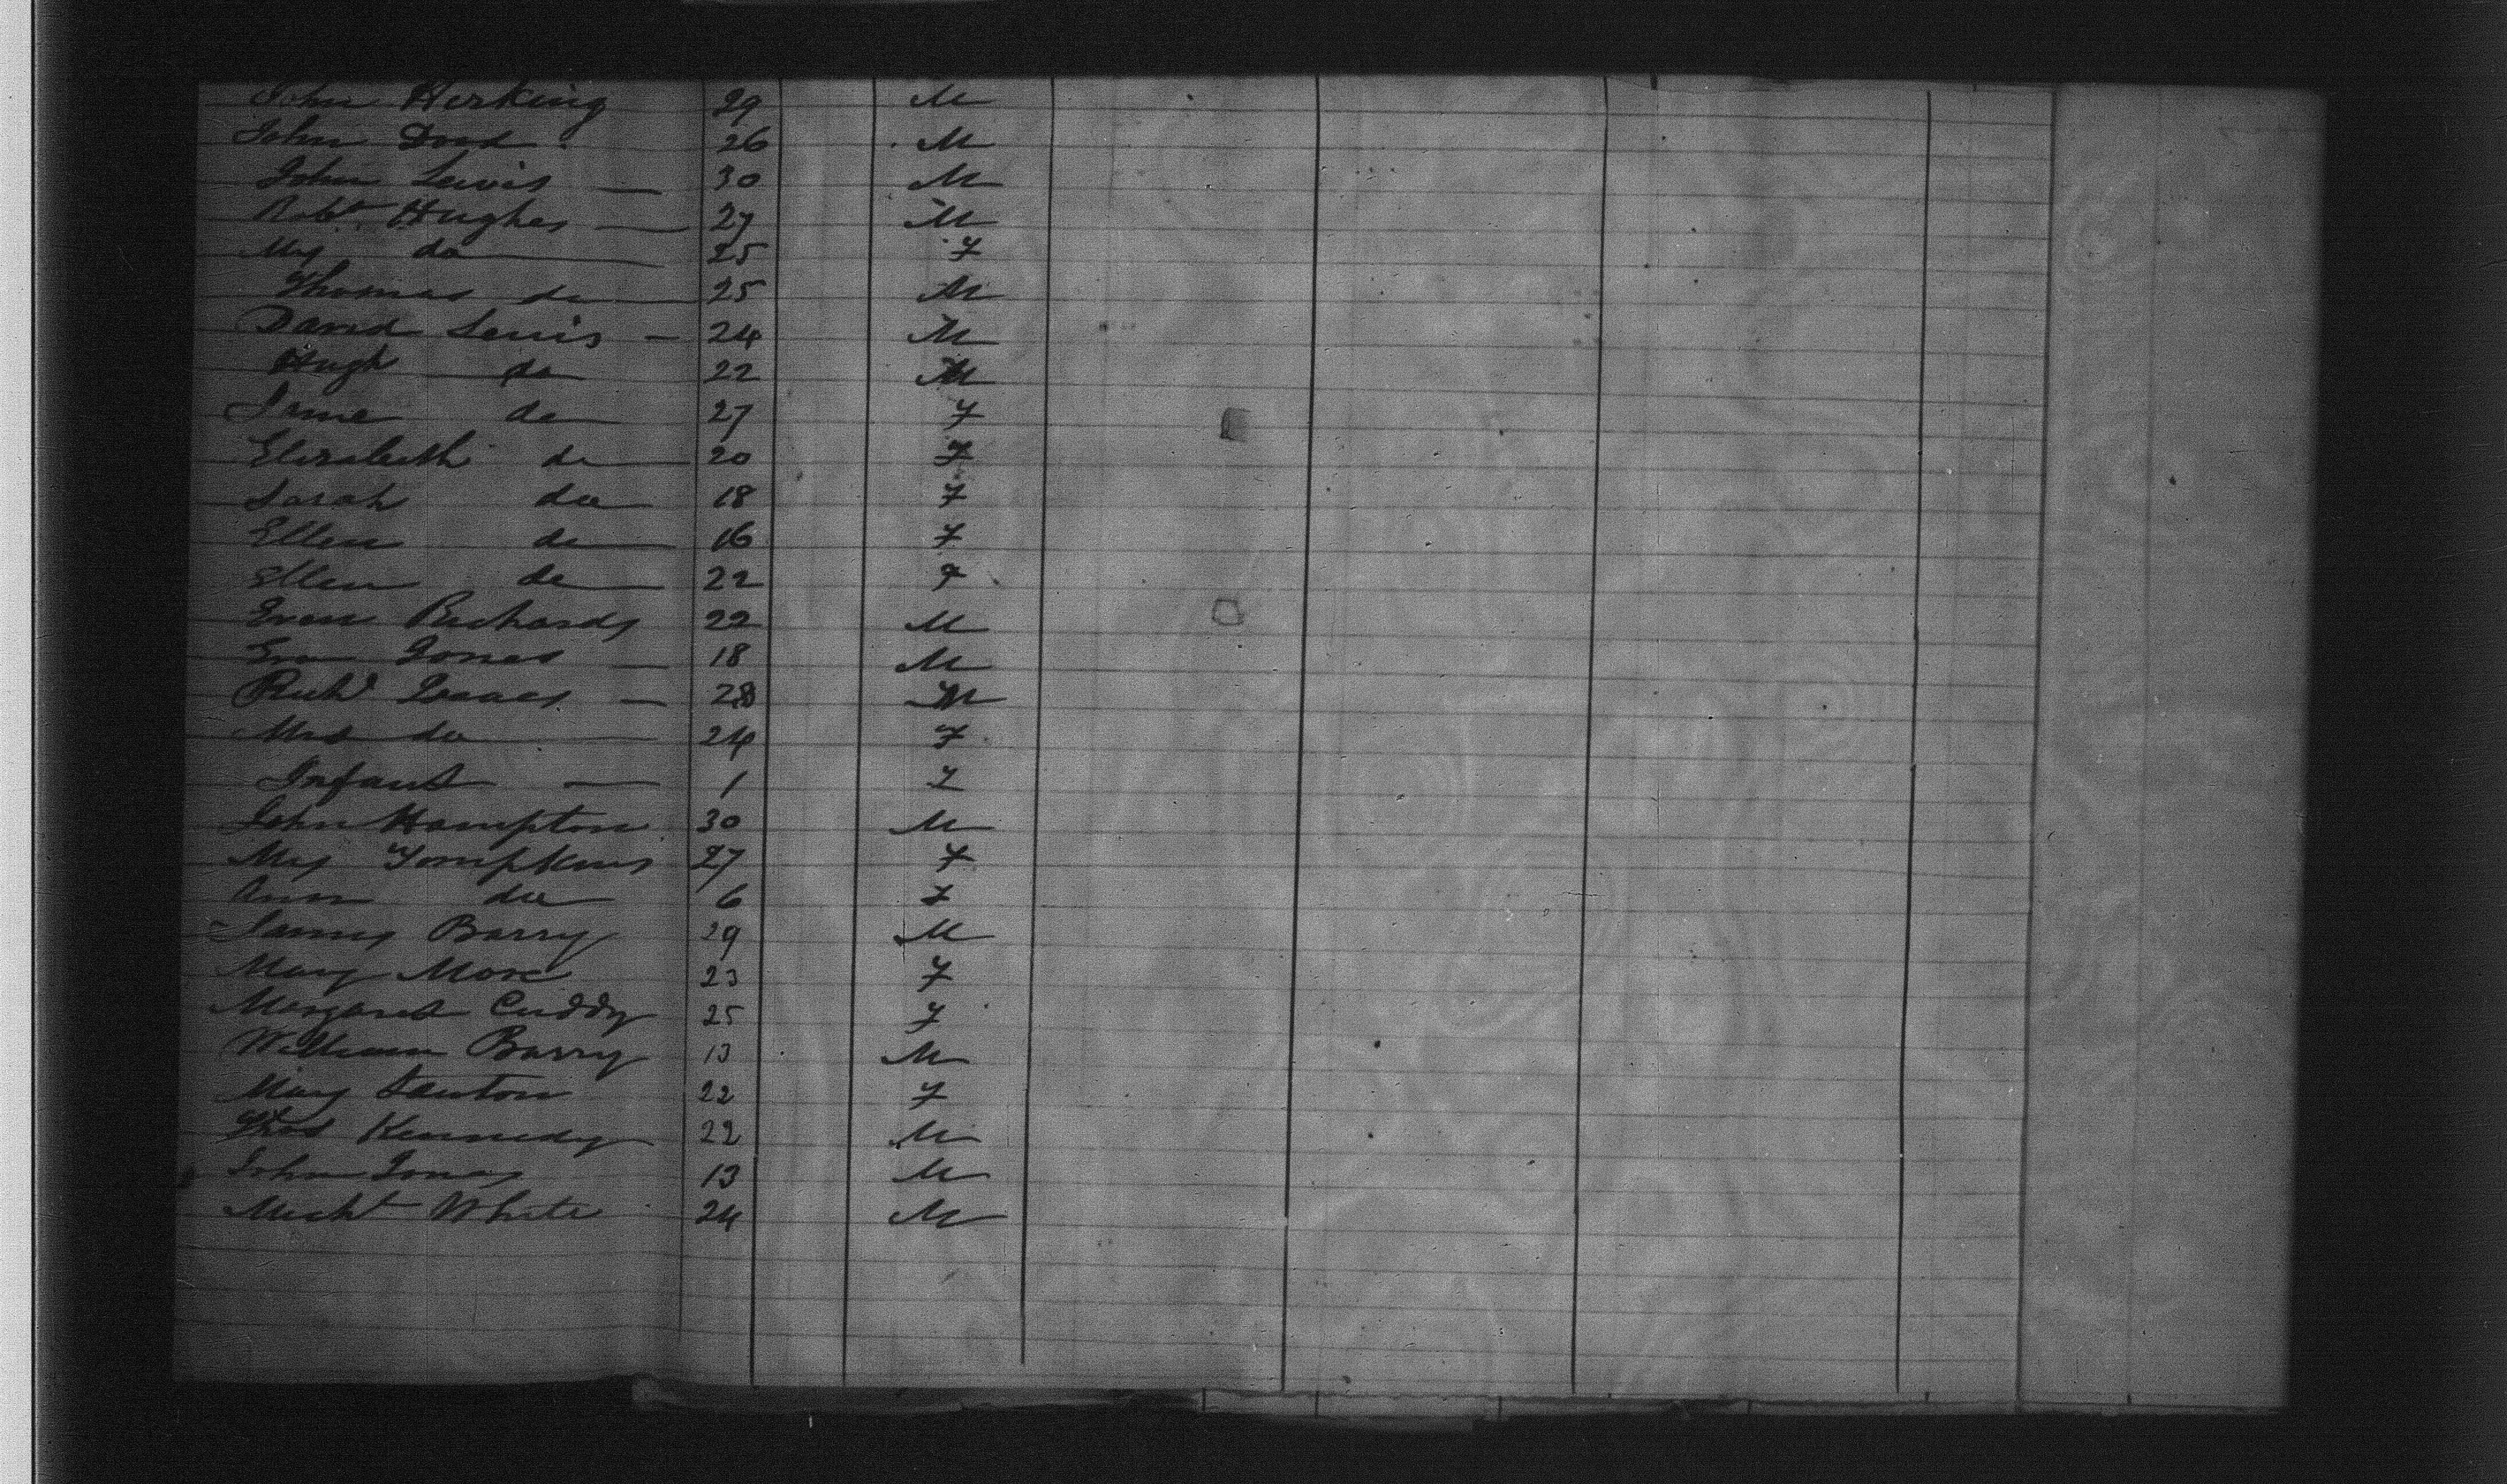 John Herking 29 M
John Dood 26 M
John Lewis — 30 M
Robt. Hughes — 27 M
Mrs do — 25 F
Thomas do — 25 M
David Lewis — 24 M
Hugh do 22 M
Jane do 27 F
Elizabeth do — 20 F
Sarah do 18 F
Ellen do — 16 F
Ellen do — 22 F
Even Richards 22 M
Evan Jones — 18 M
Richd Isaacs — 28 M
Mrs do — 24 F
Infant — 1 F
John Hampton 30 M
Mrs Tompkins 27 F
Ann do 6 F
James Barry 29 M
Mary More 23 F
Margaret Cuddy 25 F
William Barry 13 M
Mary 22 F
Thos Kennedy 22 M
John Jones 13 M
Michl White 24 M